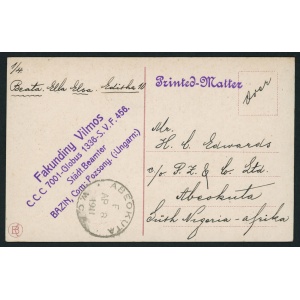 1/4
Beata, Ella Elsa, Editke 10
Printed-Matter
Fakundiny Vilmos
C.C.C 7001-Globus 1338-S.V.F. 458.
Städt. Beamter
BRZIN, Com. Pozsony. (Ungarn.)
ABEOKUTA
F
AP 8
1911
Mr.
H. C. Edwards
c/o P.Z. & C. Ltd
Abeokuta
Suth Nigeria-afrika